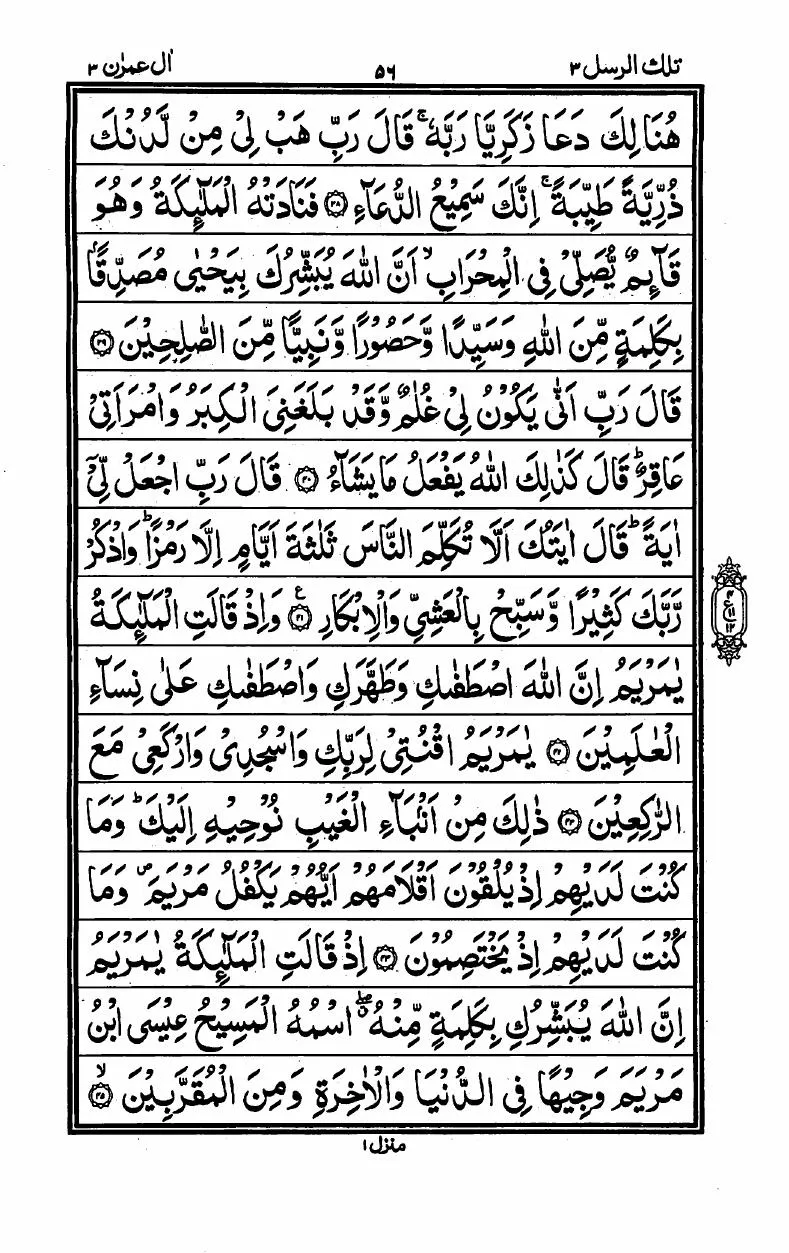 تلك الرسل ٣ ٥٦ اٰل عمرٰن ٣
هُنَالِكَ دَعَا زَكَرِيَّا رَبَّهٗ ۚ قَالَ رَبِّ هَبْ لِيْ مِنْ لَّدُنْكَ
ذُرِّيَّةً طَيِّبَةً ۚ اِنَّكَ سَمِيْعُ الدُّعَآءِ ۝٣٨ فَنَادَتْهُ الْمَلٰٓئِكَةُ وَهُوَ
قَآئِمٌ يُّصَلِّيْ فِي الْمِحْرَابِ ۙ اَنَّ اللّٰهَ يُبَشِّرُكَ بِيَحْيٰى مُصَدِّقًاۢ
بِكَلِمَةٍ مِّنَ اللّٰهِ وَسَيِّدًا وَّحَصُوْرًا وَّنَبِيًّا مِّنَ الصّٰلِحِيْنَ ۝٣٩
قَالَ رَبِّ اَنّٰى يَكُوْنُ لِيْ غُلٰمٌ وَّقَدْ بَلَغَنِيَ الْكِبَرُ وَامْرَاَتِيْ
عَاقِرٌ ؕ قَالَ كَذٰلِكَ اللّٰهُ يَفْعَلُ مَا يَشَآءُ ۝٤٠ قَالَ رَبِّ اجْعَلْ لِّيْٓ
اٰيَةً ؕ قَالَ اٰيَتُكَ اَلَّا تُكَلِّمَ النَّاسَ ثَلٰثَةَ اَيَّامٍ اِلَّا رَمْزًا ؕ وَاذْكُرْ
رَّبَّكَ كَثِيْرًا وَّسَبِّحْ بِالْعَشِيِّ وَالْاِبْكَارِ ۝٤١ ع وَاِذْ قَالَتِ الْمَلٰٓئِكَةُ
٤
ع ١١
١٢
يٰمَرْيَمُ اِنَّ اللّٰهَ اصْطَفٰىكِ وَطَهَّرَكِ وَاصْطَفٰىكِ عَلٰى نِسَآءِ
الْعٰلَمِيْنَ ۝٤٢ يٰمَرْيَمُ اقْنُتِيْ لِرَبِّكِ وَاسْجُدِيْ وَارْكَعِيْ مَعَ
الرّٰكِعِيْنَ ۝٤٣ ذٰلِكَ مِنْ اَنْۢبَآءِ الْغَيْبِ نُوْحِيْهِ اِلَيْكَ ؕ وَمَا
كُنْتَ لَدَيْهِمْ اِذْ يُلْقُوْنَ اَقْلَامَهُمْ اَيُّهُمْ يَكْفُلُ مَرْيَمَ ۪ وَمَا
كُنْتَ لَدَيْهِمْ اِذْ يَخْتَصِمُوْنَ ۝٤٤ اِذْ قَالَتِ الْمَلٰٓئِكَةُ يٰمَرْيَمُ
اِنَّ اللّٰهَ يُبَشِّرُكِ بِكَلِمَةٍ مِّنْهُ ۖۗ اسْمُهُ الْمَسِيْحُ عِيْسَى ابْنُ
مَرْيَمَ وَجِيْهًا فِي الدُّنْيَا وَالْاٰخِرَةِ وَمِنَ الْمُقَرَّبِيْنَ ۝٤٥ ۙ
منزل ١